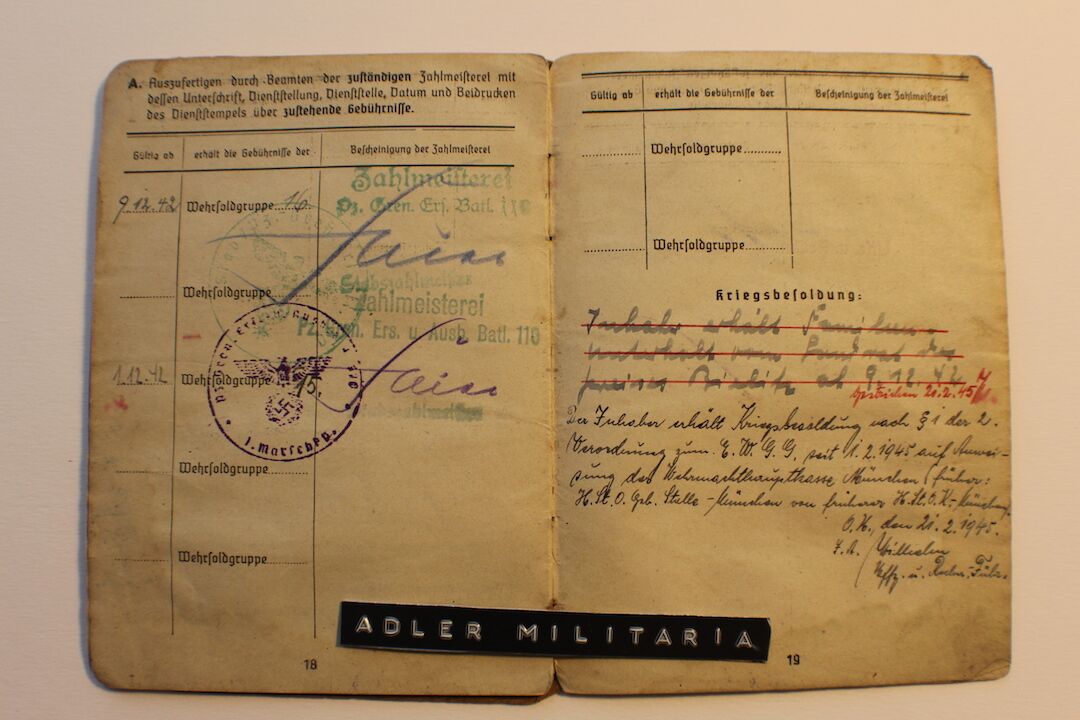 A. Auszufertigen durch Beamten der zuständigen Zahlmeisterei mit
dessen Unterschrift, Dienststellung, Dienststelle, Datum und Beidrucken
des Dienststempels über zustehende Gebührnisse.
Gültig ab erhält die Gebührnisse der Bescheinigung der Zahlmeisterei
Zahlmeisterei
9.12.42 Wehrsoldgruppe 16. Pz. Gren. Ers. Batl. 110
Stabszahlmeister
Wehrsoldgruppe Zahlmeisterei
Pz. Gren. Ers. u. Ausb. Batl. 110
1.12.42 Wehrsoldgruppe 15.
Stabszahlmeister
1. Marschkp.
Wehrsoldgruppe
Wehrsoldgruppe
18
Gültig ab erhält die Gebührnisse der Bescheinigung der Zahlmeisterei
Wehrsoldgruppe
Wehrsoldgruppe
Kriegsbesoldung:
Inhaber erhält Familien-
unterhalt vom Landrat des
Kreises Bielitz ab 9.12.42
gestrichen 21.2.45
Der Inhaber erhält Kriegsbesoldung nach § 1 der 2.
Verordnung zum E.W.G.G. seit 1.2.1945 auf Anwei-
sung der Wehrmachthauptkasse München (früher:
H.St.O. Geb. Stelle - München von früherer H.St.O.K.-
O.U., den 21.2.1945.
Uffz. u. Rechn. Führ.
19
ADLER MILITARIA